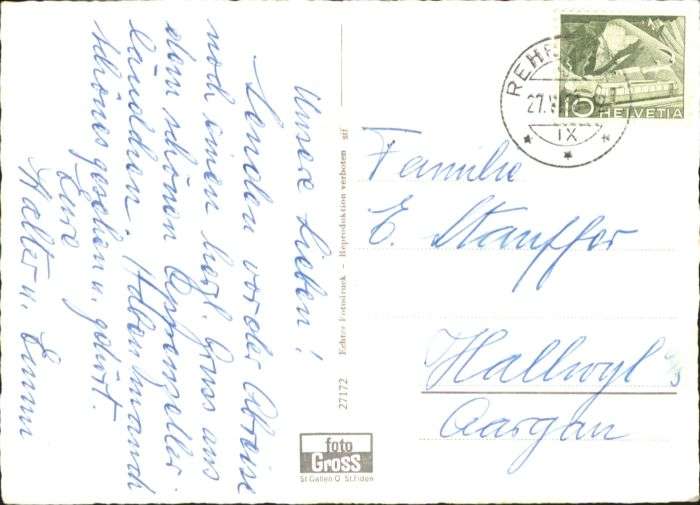 Unsere Lieben!
Senden vor der Abreise
noch einen herzl. Gruss aus
dem schönen Appenzeller
ländchen. Haben manch
schönes gesehen u. gehört.
Eure
Walter u. Emmi
27172 Echter Fotodruck - Reproduktion verboten
foto
Gross
St Gallen O St.Fiden
REHE
27.V
IX
10 HELVETIA
Familie
E. Stauffer
Hallwyl
Aargau